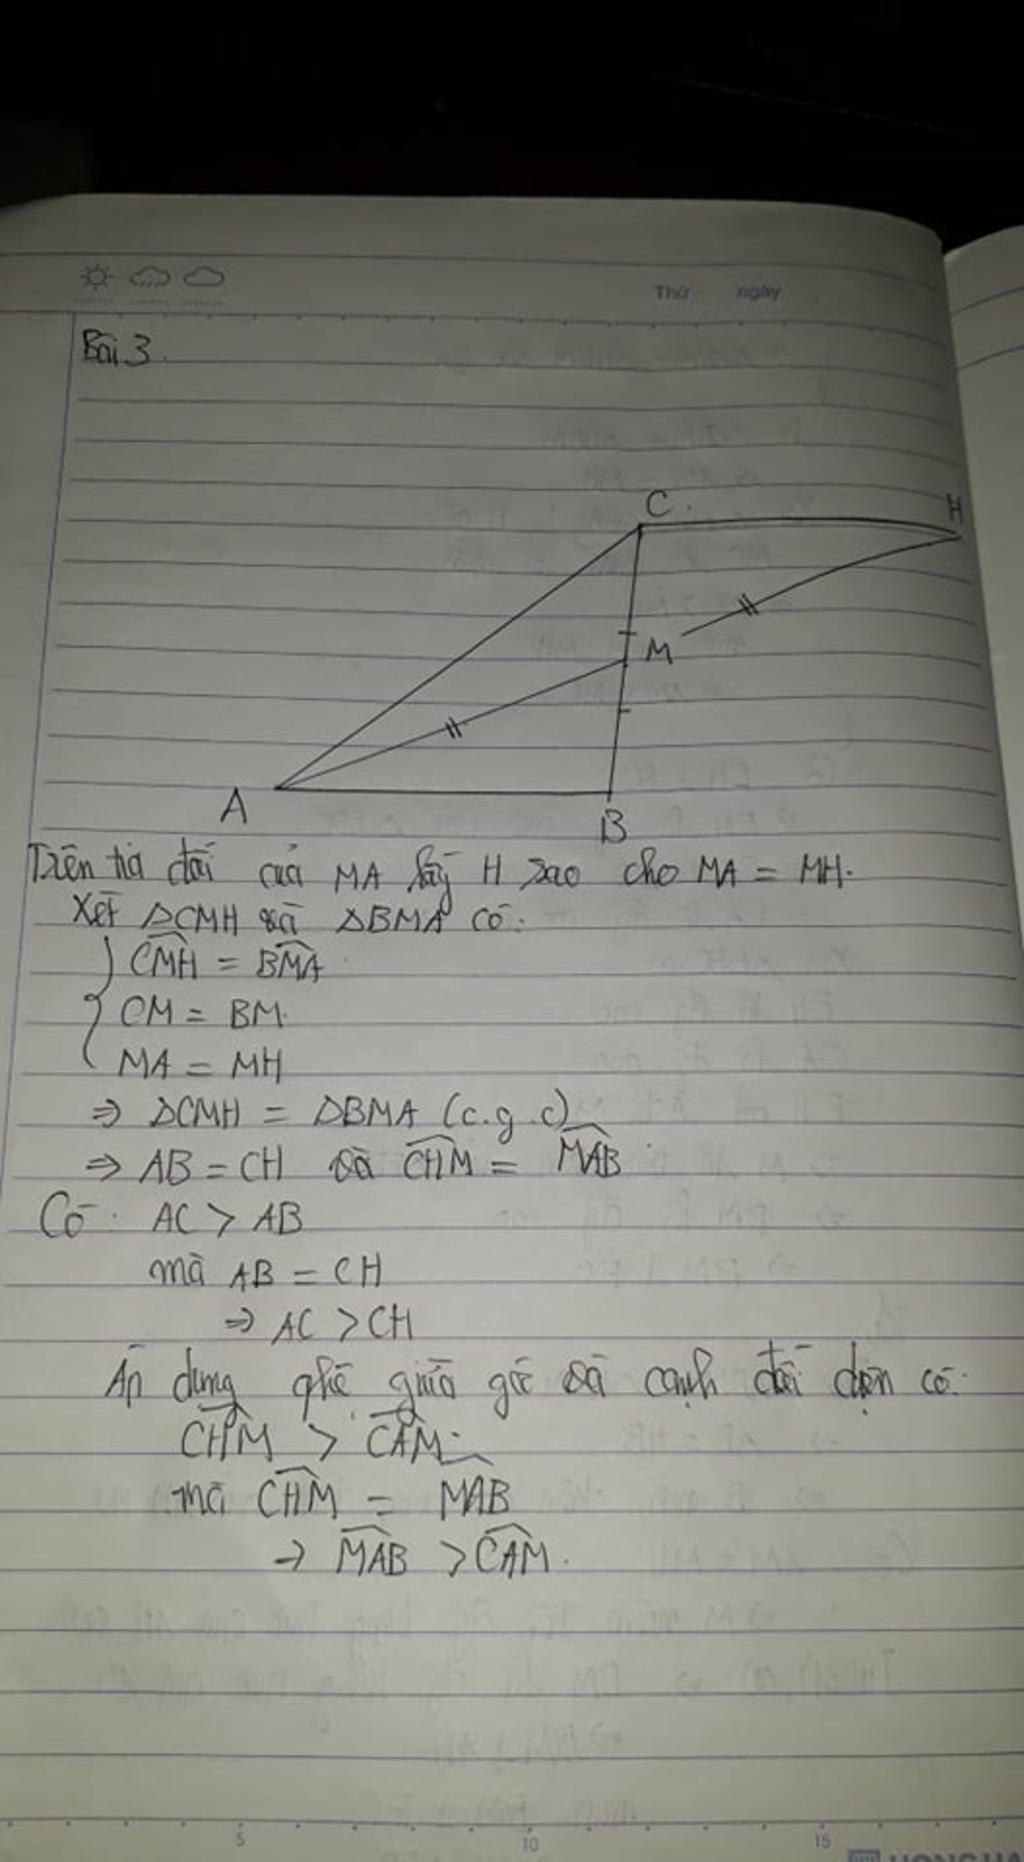 Thứ ngày
Bài 3.
C.
H
M
A
B
Trên tia đối của MA lấy H sao cho MA = MH.
Xét ΔCMH và ΔBMA có:
CMH = BMA
CM = BM.
MA = MH
⇒ ΔCMH = ΔBMA (c.g.c)
⇒ AB = CH và CHM = MAB
Có: AC > AB
mà AB = CH
⇒ AC > CH
Áp dụng giữa góc và cạnh đối diện có:
CHM > CAM.
mà CHM = MAB
⇒ MAB > CAM.
5 10 15